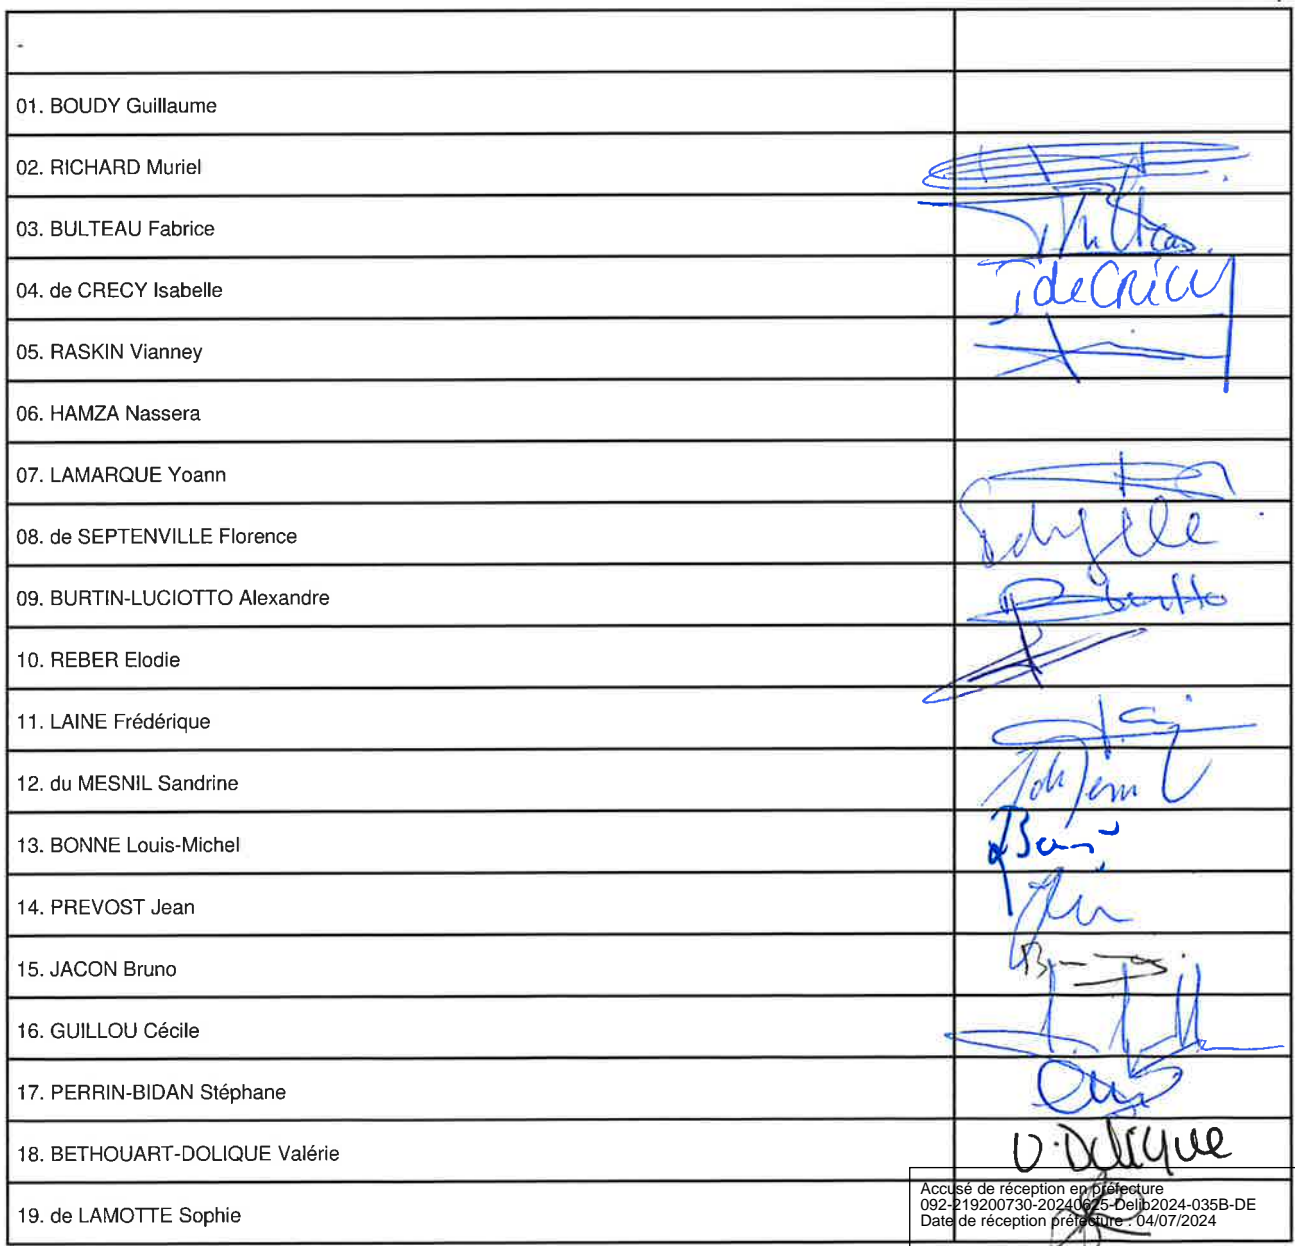 -
01. BOUDY Guillaume
02. RICHARD Muriel
03. BULTEAU Fabrice
04. de CRECY Isabelle
I de Crécy
05. RASKIN Vianney
06. HAMZA Nassera
07. LAMARQUE Yoann
08. de SEPTENVILLE Florence
09. BURTIN-LUCIOTTO Alexandre
10. REBER Elodie
11. LAINE Frédérique
12. du MESNIL Sandrine
13. BONNE Louis-Michel
14. PREVOST Jean
15. JACON Bruno
16. GUILLOU Cécile
17. PERRIN-BIDAN Stéphane
18. BETHOUART-DOLIQUE Valérie
V. Dolique
19. de LAMOTTE Sophie
Accusé de réception en préfecture
092-219200730-20240625-Delib2024-035B-DE
Date de réception préfecture : 04/07/2024